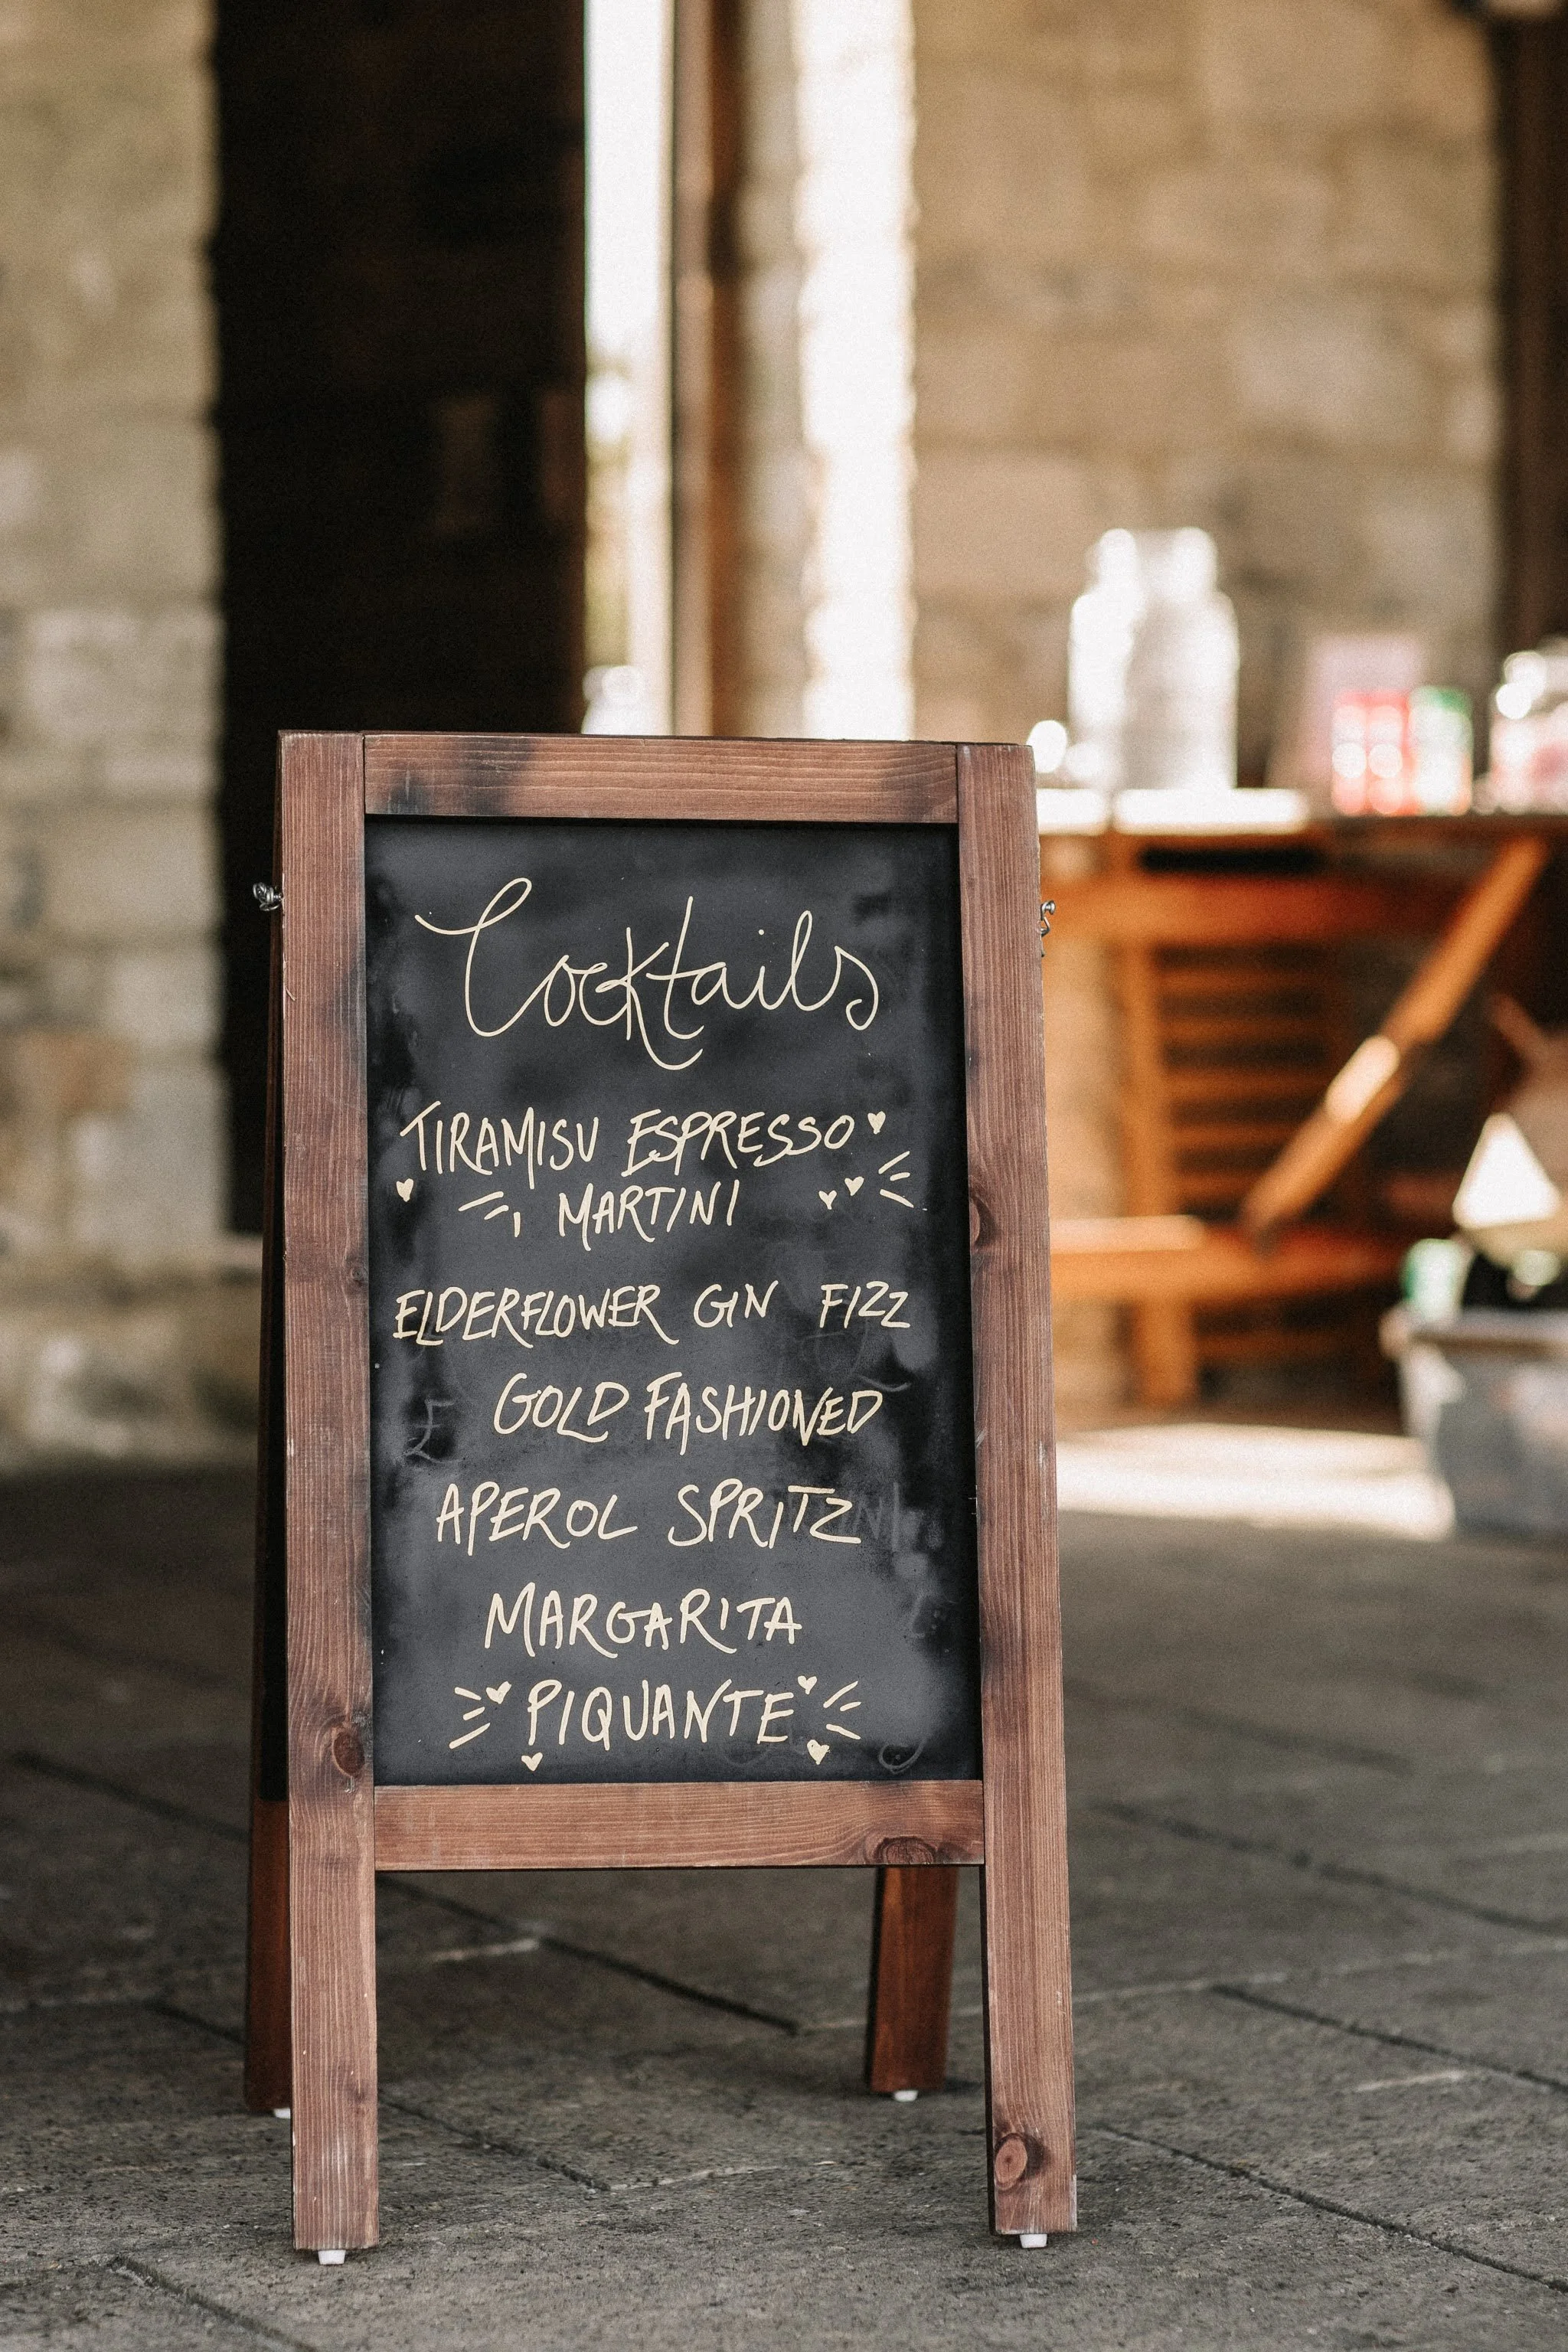 Cocktails
TIRAMISU ESPRESSO
MARTINI
ELDERFLOWER GIN FIZZ
GOLD FASHIONED
APEROL SPRITZ
MARGARITA
PIQUANTE